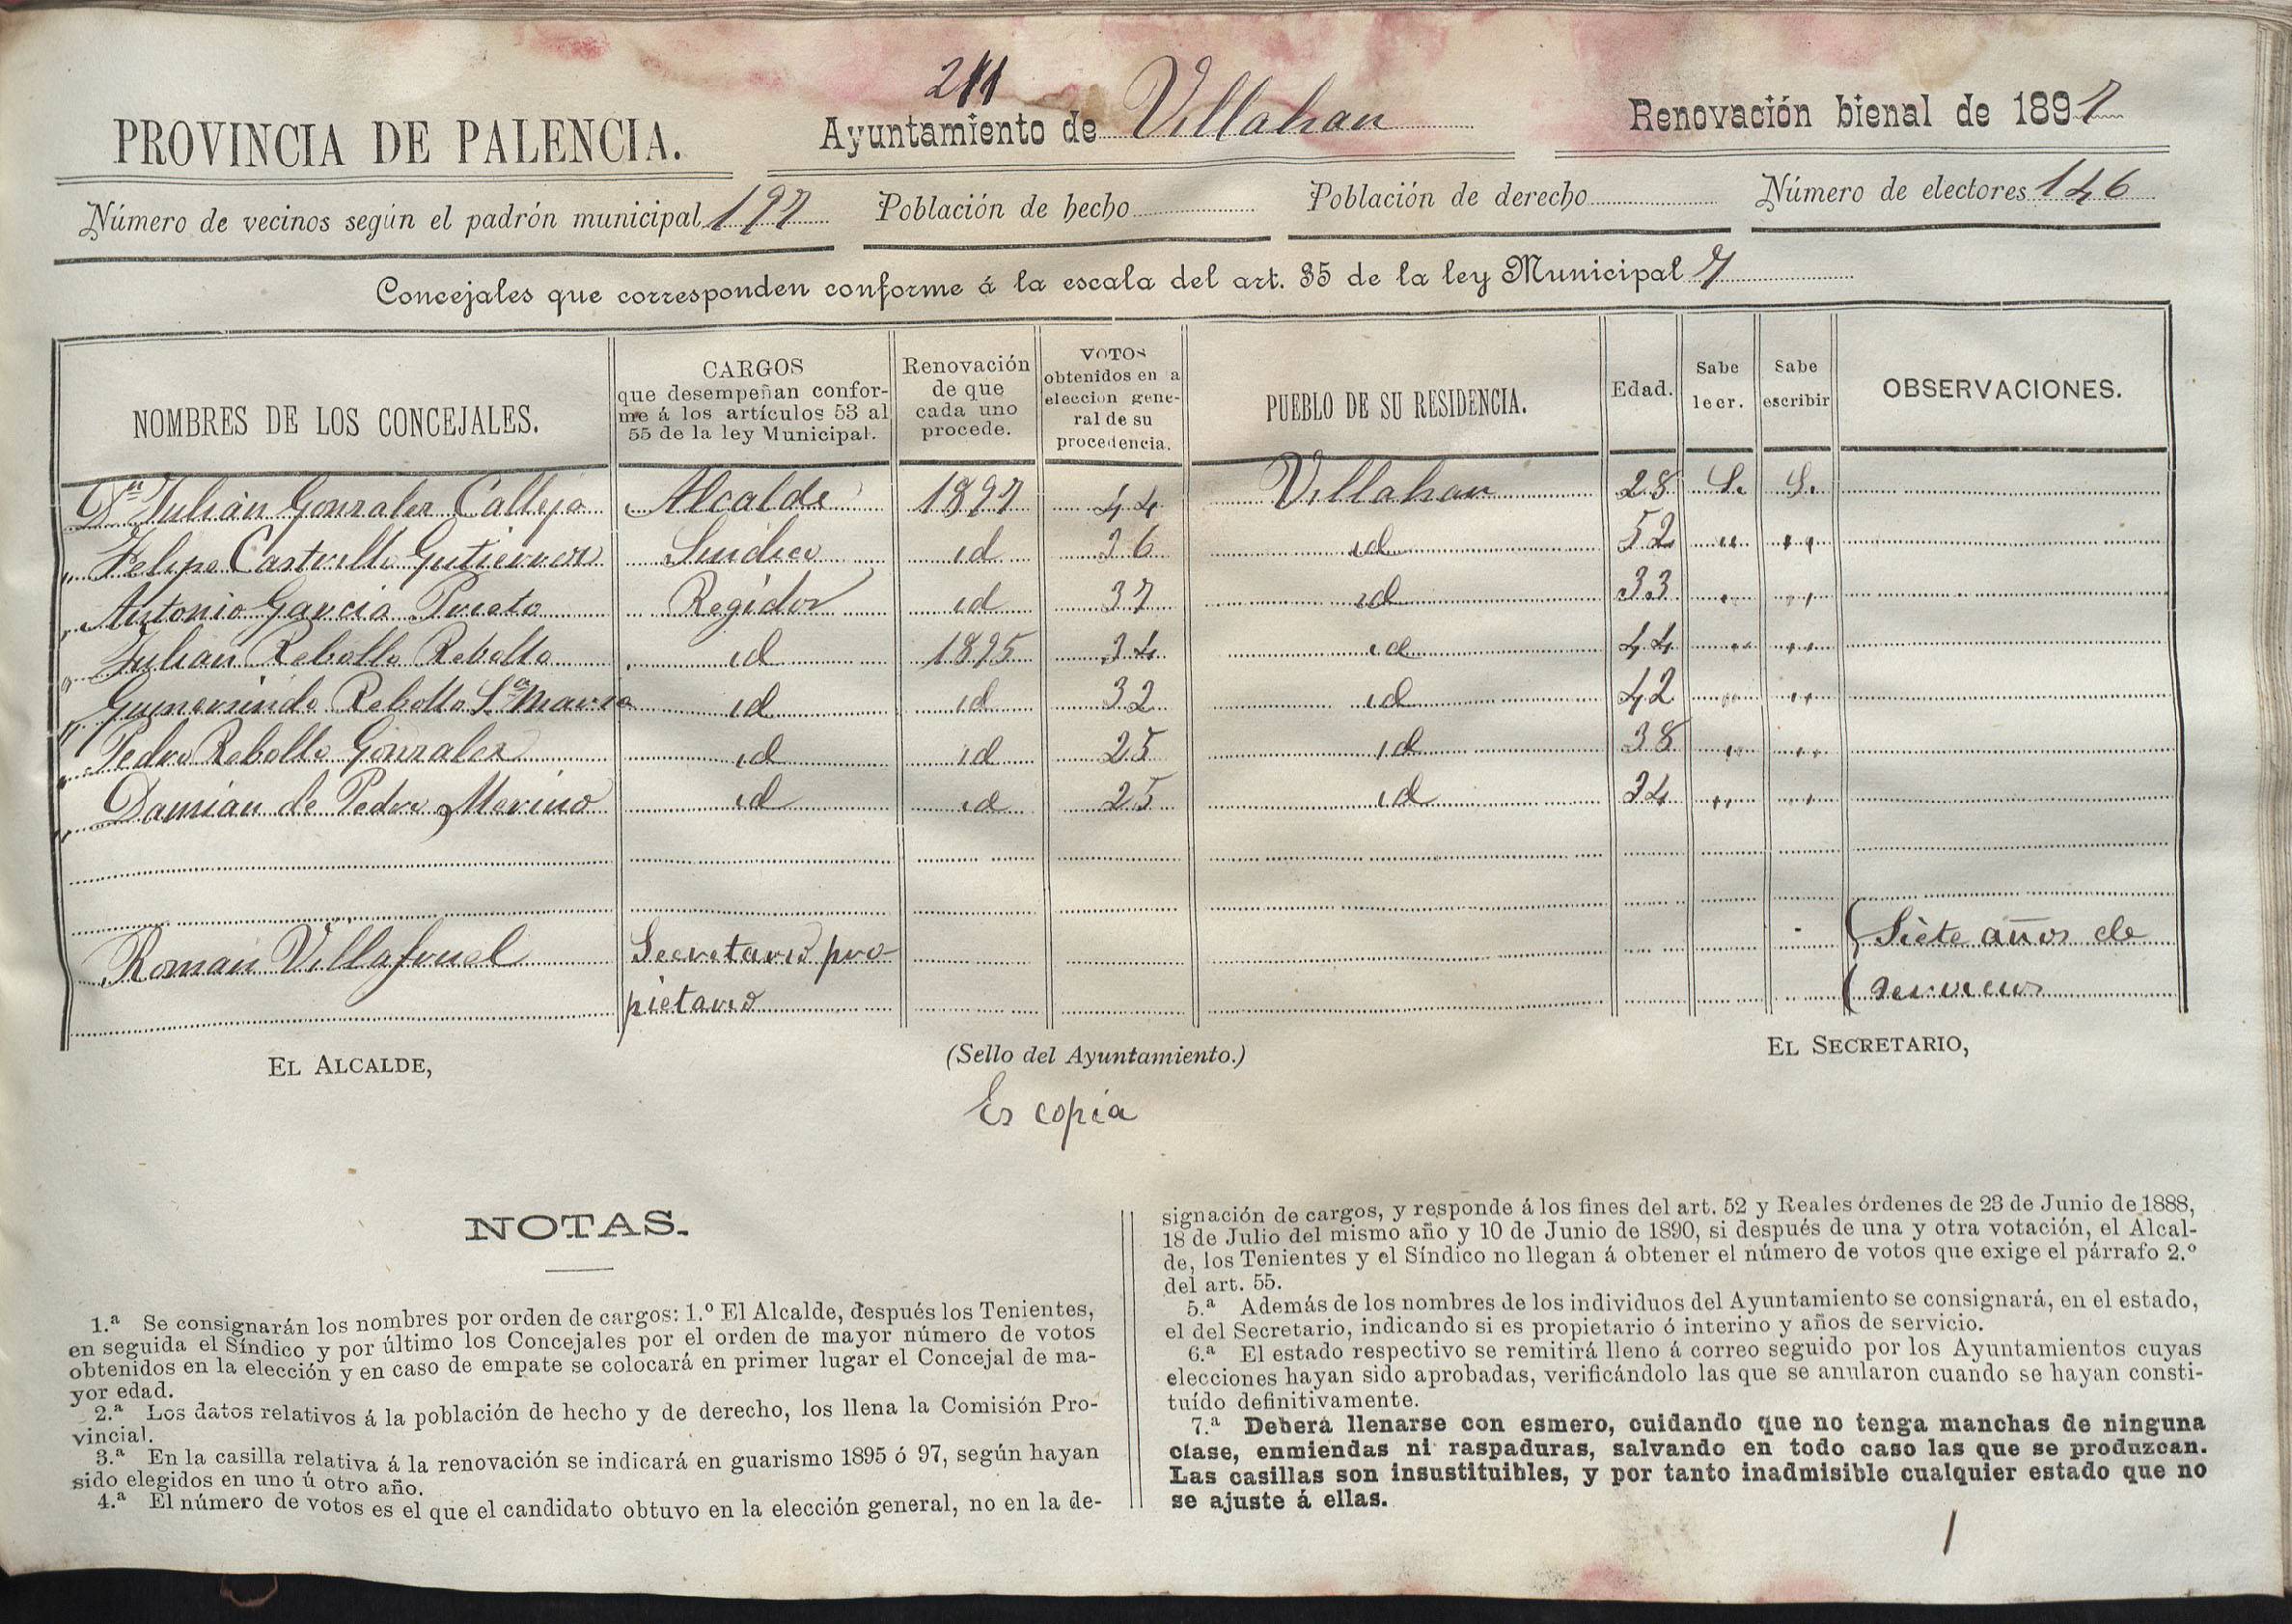 211
PROVINCIA DE PALENCIA. Ayuntamiento de Villahan Renovación bienal de 1897
Número de vecinos según el padrón municipal 197 Población de hecho Población de derecho Número de electores 146
Concejales que corresponden conforme á la escala del art. 35 de la ley Municipal 7
NOMBRES DE LOS CONCEJALES. CARGOS que desempeñan confor- me á los artículos 53 al 55 de la ley Municipal. Renovación de que cada uno procede. VOTOS obtenidos en a eleccion gene- ral de su procedencia. PUEBLO DE SU RESIDENCIA. Edad. Sabe leer. Sabe escribir OBSERVACIONES.
Dn Julián Gonzalez Calleja Alcalde 1897 44 Villahan 28 S. S.
" Felipe Castrillo Gutierrez Sindico id 36 id 52 " "
" Antonio Garcia Prieto Regidor id 37 id 33 " "
" Julian Rebollo Rebollo id 1895 34 id 44 " "
" Gumersindo Rebollo Sta Maria id id 32 id 42 " "
" Pedro Rebollo Gonzalez id id 25 id 38 " "
" Damian de Pedro y Merino id id 25 id 34 " "
Roman Villafruel Secretario pro- Siete años de
pietario servicios
EL ALCALDE, (Sello del Ayuntamiento.) EL SECRETARIO,
Es copia
NOTAS.
1.ª Se consignarán los nombres por orden de cargos: 1.º El Alcalde, después los Tenientes,
en seguida el Síndico y por último los Concejales por el orden de mayor número de votos
obtenidos en la elección y en caso de empate se colocará en primer lugar el Concejal de ma-
yor edad.
2.ª Los datos relativos á la población de hecho y de derecho, los llena la Comisión Pro-
vincial.
3.ª En la casilla relativa á la renovación se indicará en guarismo 1895 ó 97, según hayan
sido elegidos en uno ú otro año.
4.ª El número de votos es el que el candidato obtuvo en la elección general, no en la de-
signación de cargos, y responde á los fines del art. 52 y Reales órdenes de 23 de Junio de 1888,
18 de Julio del mismo año y 10 de Junio de 1890, si después de una y otra votación, el Alcal-
de, los Tenientes y el Síndico no llegan á obtener el número de votos que exige el párrafo 2.º
del art. 55.
5.ª Además de los nombres de los individuos del Ayuntamiento se consignará, en el estado,
el del Secretario, indicando si es propietario ó interino y años de servicio.
6.ª El estado respectivo se remitirá lleno á correo seguido por los Ayuntamientos cuyas
elecciones hayan sido aprobadas, verificándolo las que se anularon cuando se hayan consti-
tuído definitivamente.
7.ª Deberá llenarse con esmero, cuidando que no tenga manchas de ninguna
clase, enmiendas ni raspaduras, salvando en todo caso las que se produzcan.
Las casillas son insustituibles, y por tanto inadmisible cualquier estado que no
se ajuste á ellas.